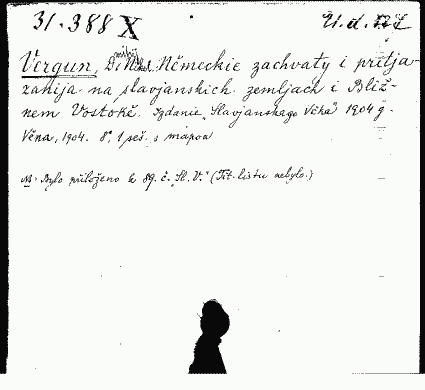 31.388 X
Vergun, Dmitrij. Německie zachvaty i pritja-
zanija na slavjanskich zemljach i Bliž-
nem Vostokě. Izdanie „Slavjanskago Věka" 1904 g.
Věna, 1904. 8°, 1 seš. s mapou
NB. Bylo přiloženo k 89. č. „Sl. V." (Tit. listu nebylo.)